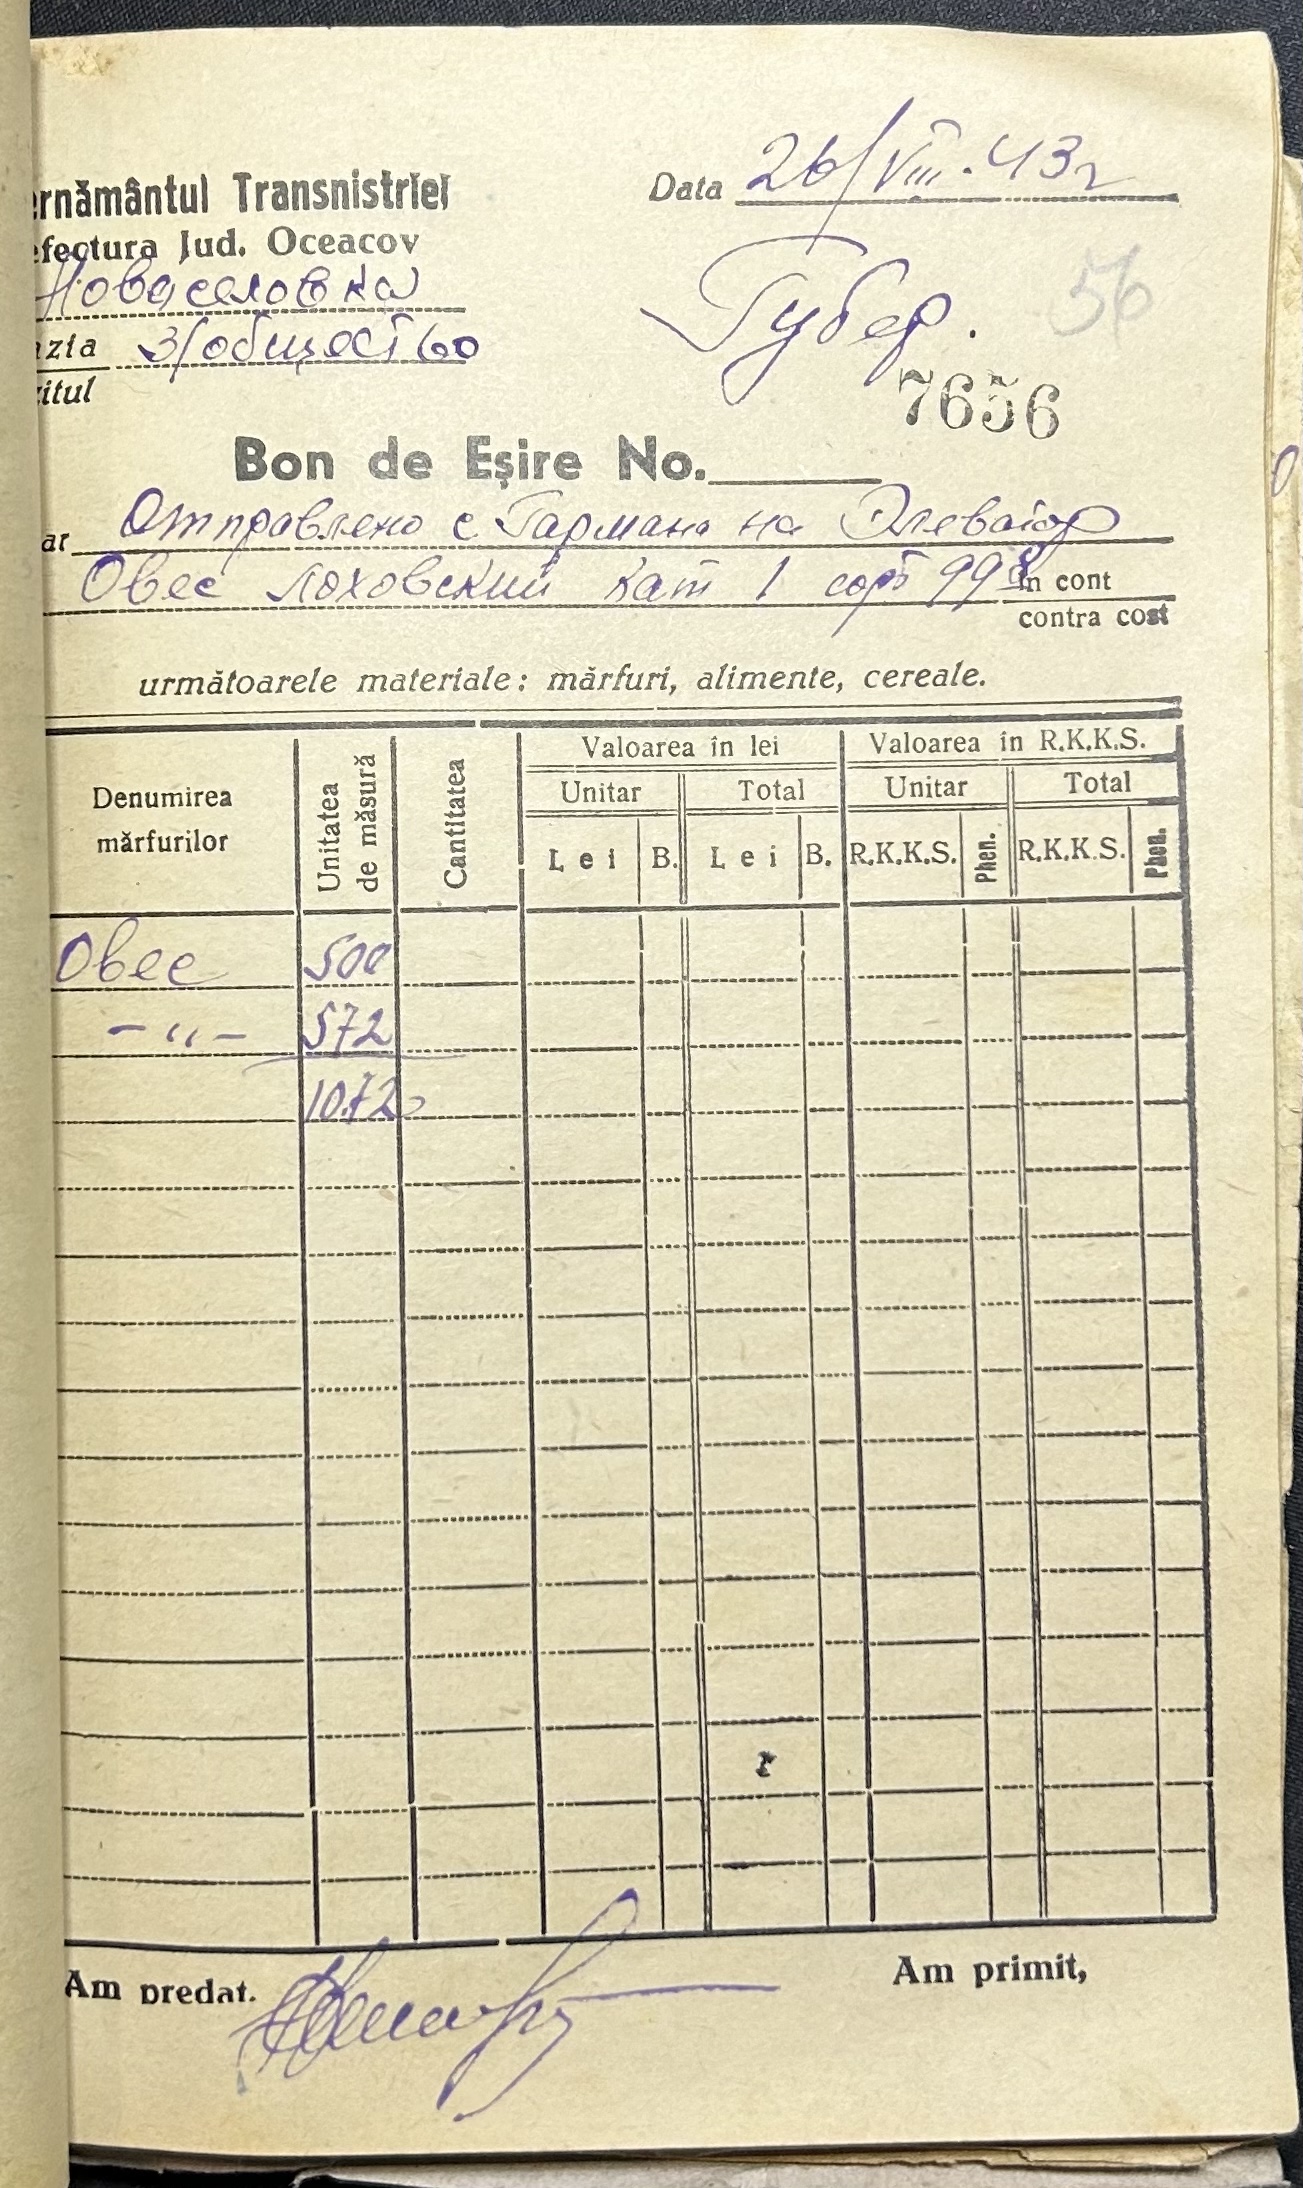 ernământul Transnistriei
Data 26/VIII.43г
efectura Jud. Oceacov
Новоселовка
Губер.
56
azia З/общество
zitul
7656
Bon de Eşire No.
ar Отправлено с Гармана на Элеватор
Овес лоховский кат 1 сорт 99%
în cont
contra cost
următoarele materiale: mărfuri, alimente, cereale.
Denumirea mărfurilor
Unitatea de măsură
Cantitatea
Valoarea în lei
Valoarea în R.K.K.S.
Unitar Total Unitar Total
Lei B. Lei B. R.K.K.S. Phen. R.K.K.S. Phen.
Овес 500
-"- 572
1072
Am predat.
Am primit,